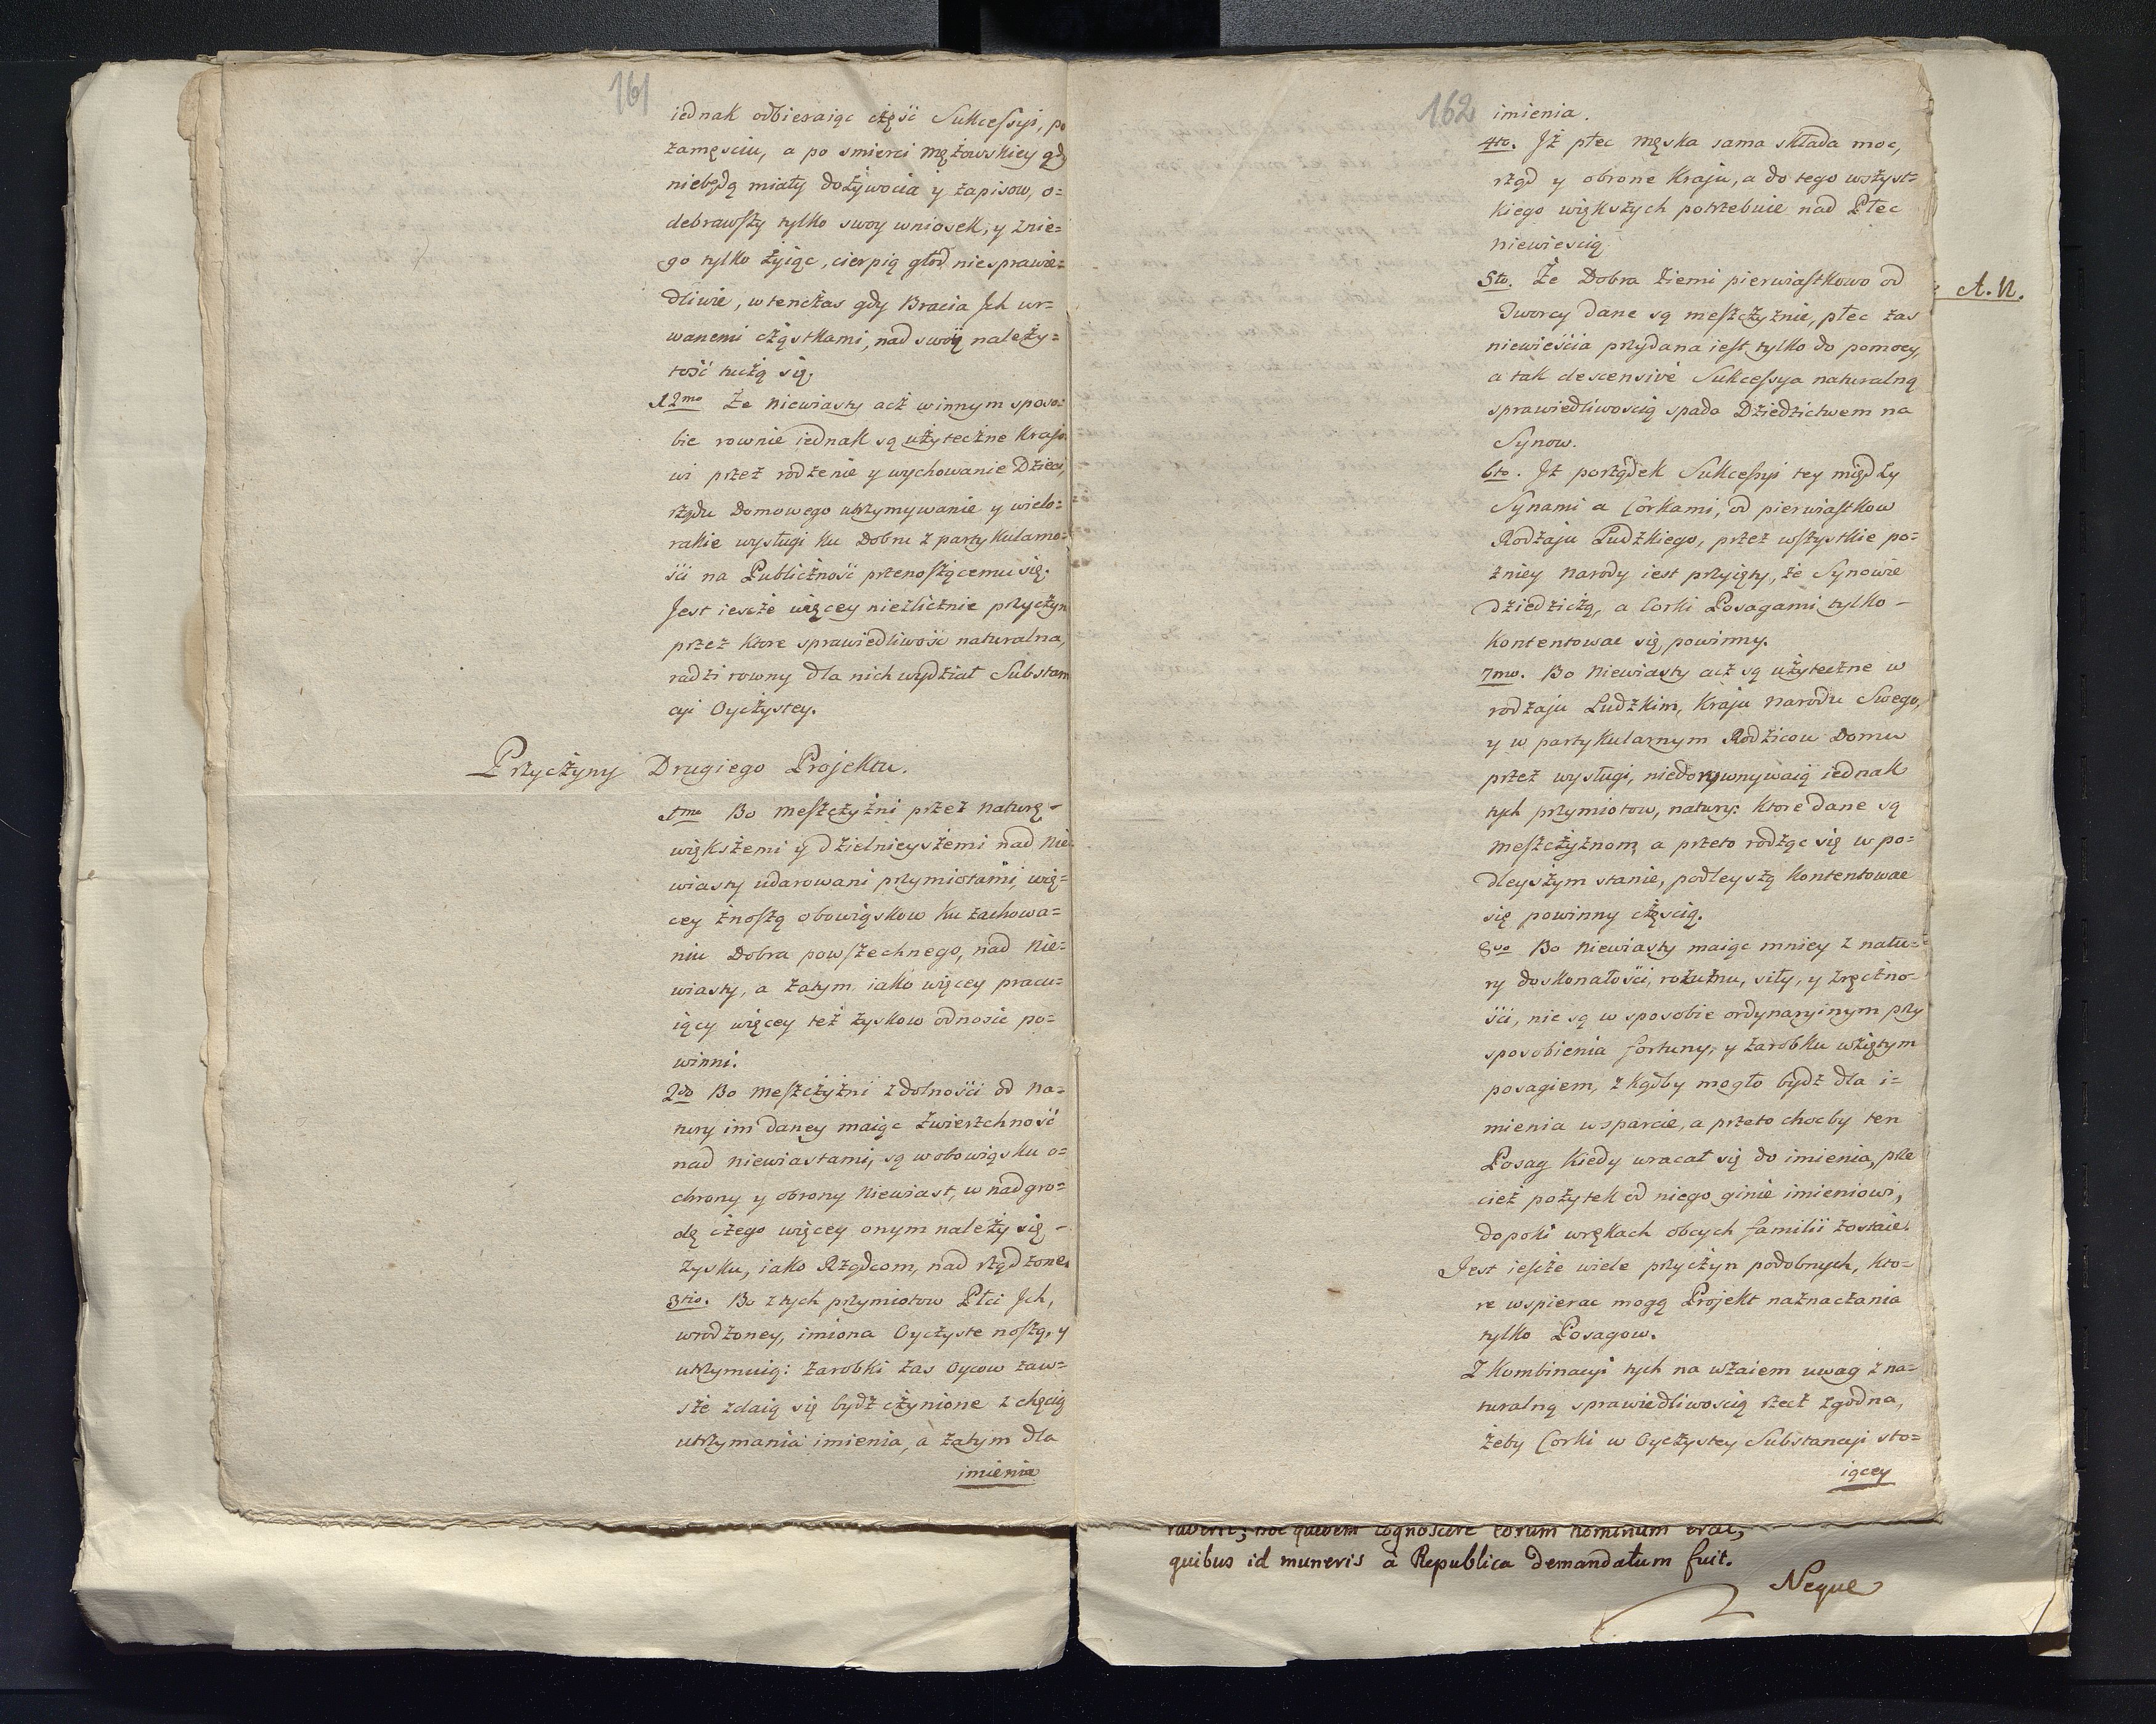 161
iednak odbieraiąc część Sukcessyi, po
zamęsciu, a po smierci mężowskiey gdy
niebędą miały dożywocia y zapisow, o=
debrawszy tylko swoy wniosek, y znie=
go tylko żyiąc, cierpią głod niesprawie=
dliwie, wtenczas gdy Bracia Ich ur=
wanemi cząstkami, nad swoią należy=
tość tuczą się.
12mo Że Niewiasty acz winnym sposo=
bie rownie iednak są użyteczne Krajo
wi przez rodzenie y wychowanie Dzieci,
rządu Domowego utrzymywanie y wielo=
rakie wysługi ku Dobru z partykularno=
ści na Publiczność przenoszącemu się.
Jest ieszcze więcey niezlicznie przyczyn
przez ktore sprawiedliwość naturalna,
radzi rowny dla nich wydział Substan
cyi Oyczystey.
Przyczyny Drugiego Projektu.
1mo Bo Meszczyzni przez naturę -
większemi y dzielnieyszemi nad Nie=
wiasty udarowani przymiotami, wię=
cey znoszą obowiąskow ku zachowa=
niu Dobra powszechnego, nad Nie=
wiasty, a zatym iako więcey pracu=
iący więcey też zyskow odnosic po=
winni.
2do Bo Meszczyzni z dolności od Na=
tury im daney maiąc zwierzchność
nad Niewiastami, są wobowiąsku o=
chrony y obrony Niewiast, w nadgro=
dę czego więcey onym należy się -
zysku, iako Rządcom, nad rządzone.
3tio. Bo z tych przymiotow Płci Ich,
wrodzoney, imiona Oyczyste noszą, y
utrzymuią: zarobki zas Oycow zaw=
sze zdaią się bydz czynione z chęcią
utrzymania imienia, a zatym dla
imienia
162
imienia.
4to. Iż płec męska sama składa moc,
rząd y obrone Kraju, a do tego wszyst=
kiego większych potrzebuie nad Płec
niewiescią.
5to. Że Dobra ziemi pierwiastkowo od
Tworcy dane są meszczyznie, płec zas
niewieścia przydana iest tylko do pomocy,
a tak descensivè Sukcessya naturalną
sprawiedliwoscią spada Dziedzictwem na
Synow.
6to. Iż porządek Sukcessyi tey między
Synami a Corkami, od pierwiastkow
Rodzaju Ludzkiego, przez wszystkie po=
zniey Narody iest przyięty, że Synowie
dziedziczą, a Corki Posagami tylko -
kontentowac się powinny.
7mo. Bo Niewiasty acz są użyteczne w
rodzaju Ludzkim, Kraju Narodu Swego,
y w partykularnym Rodzicow Domu
przez wysługi, niedorownywaią iednak
tych przymiotow, natury: ktore dane są
Meszczyznom, a przeto rodząc się w po=
dleyszym stanie, podleyszą kontentowac
się powinny częscią.
8vo Bo Niewiasty maiąc mniey z natu=
ry doskonałości, rozumu, siły, y zręczno=
ści, nie są w sposobie ordynaryinym przy
sposobienia fortuny, y zarobku wziętym
posagiem, z kądby mogło bydz dla i=
mienia wsparcie, a przeto chocby ten
Posag kiedy wracał się do imienia, prze
cież pożytek od niego ginie imieniowi,
dopoki wrękach obcych familii zostaie.
Jest ieszcze wiele przyczyn podobnych, kto=
re wspierac mogą Projekt naznaczania
tylko Posagow.
Z kombinacyi tych na wzaiem uwag z na=
turalną sprawiedliwoscią rzecz zgodna,
żeby Corki w Oyczystey Substancyi sto=
iącey
A. N.
quidem cognoscere eorum hominum erat,
quibus id muneris à Republica demandatum fuit.
Neque